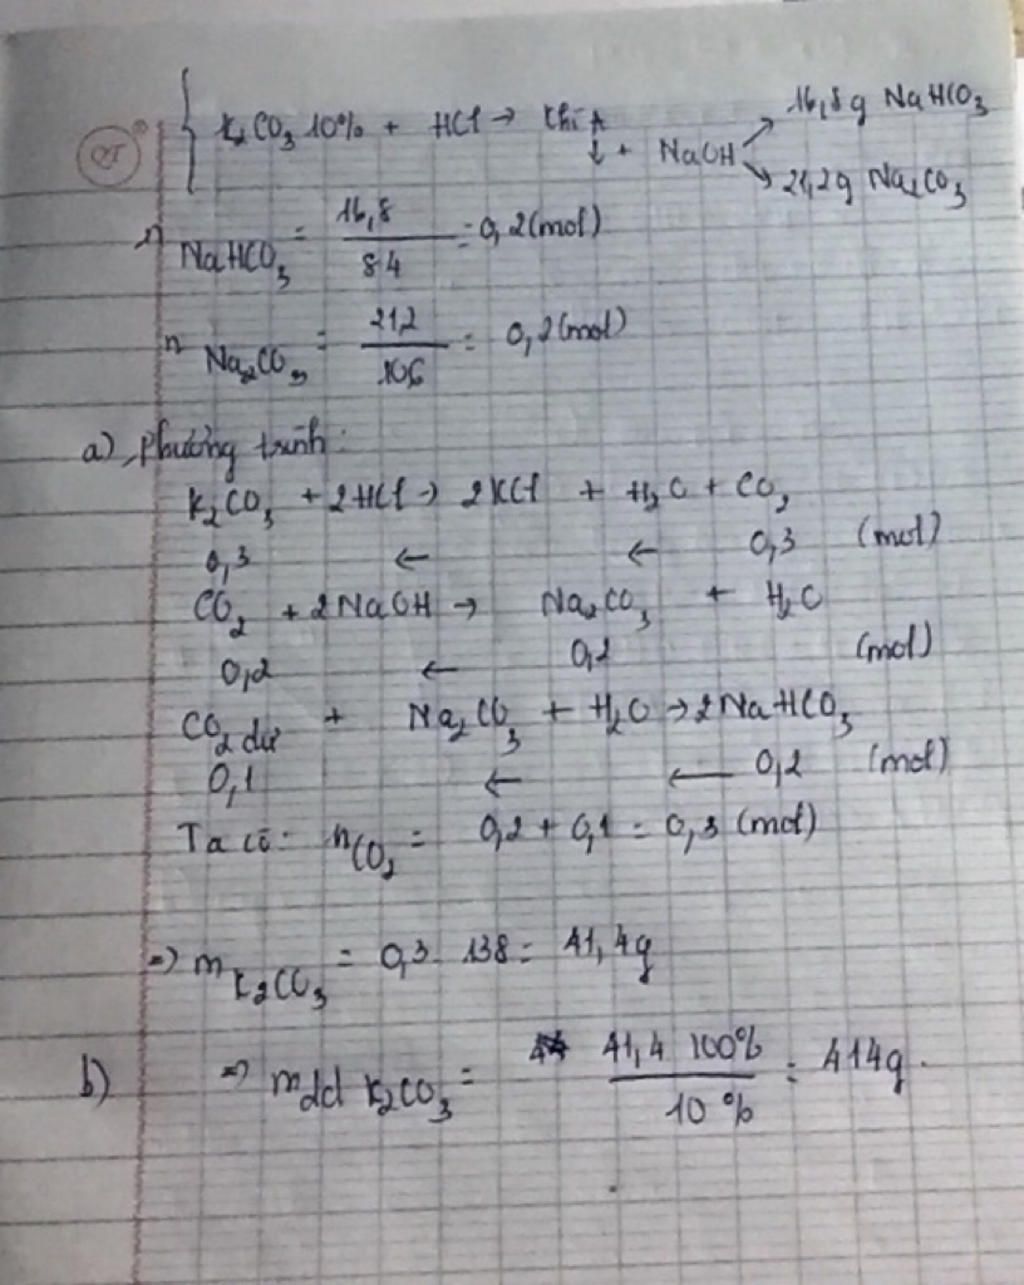 K₂CO₃ 10% + HCl → khí A
↓ + NaOH ↗ 16,8g NaHCO₃
↘ 21,2g Na₂CO₃
n NaHCO₃ = 16,8 / 84 = 0,2 (mol)
n Na₂CO₃ = 21,2 / 106 = 0,2 (mol)
a) Phương trình:
K₂CO₃ + 2HCl → 2KCl + H₂O + CO₂
0,3 ← ← 0,3 (mol)
CO₂ + 2NaOH → Na₂CO₃ + H₂O
0,2 ← 0,2 (mol)
CO₂ dư + Na₂CO₃ + H₂O → 2NaHCO₃
0,1 ← ← 0,2 (mol)
Ta có: n CO₂ = 0,2 + 0,1 = 0,3 (mol)
=> m K₂CO₃ = 0,3 . 138 = 41,4g
b) => m dd K₂CO₃ = 41,4 . 100% / 10% = 414g.